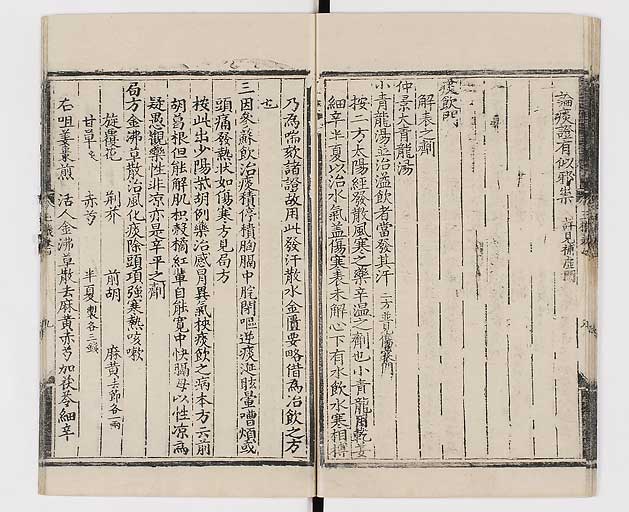 論痰證有似邪祟 詳見補虛門
痰飲門
解表之劑
仲景大青龍湯
小青龍湯並治溢飲者當發其汗 二方並見傷寒門
按二方太陽經發散風寒之藥辛溫之劑也小青龍用乾姜
細辛半夏以治水氣盖傷寒表未解心下有水飲水寒相搏
乃為喘欬諸證故用此發汗散水金匱要略借為治飲之方
也
三因參蘇飲治痰積停積胸膈中脘閉嘔逆痰涎眩暈嘈煩或
頭痛發熱狀如傷寒方見局方
按此出少陽柴胡例藥治感冒異氣挾痰飲之病本方云前
胡葛根但能解肌枳殼橘紅輩自能寛中快膈毋以性凉為
疑愚觀藥性非凉亦是辛平之劑
局方金沸草散治風化痰除頭項強寒熱咳嗽
旋覆花 荆芥 前胡 麻黄去節各一兩
甘草 赤芍 半夏製各三錢
右咀姜棗煎 活人金沸草散去麻黄赤芍加茯苓細辛